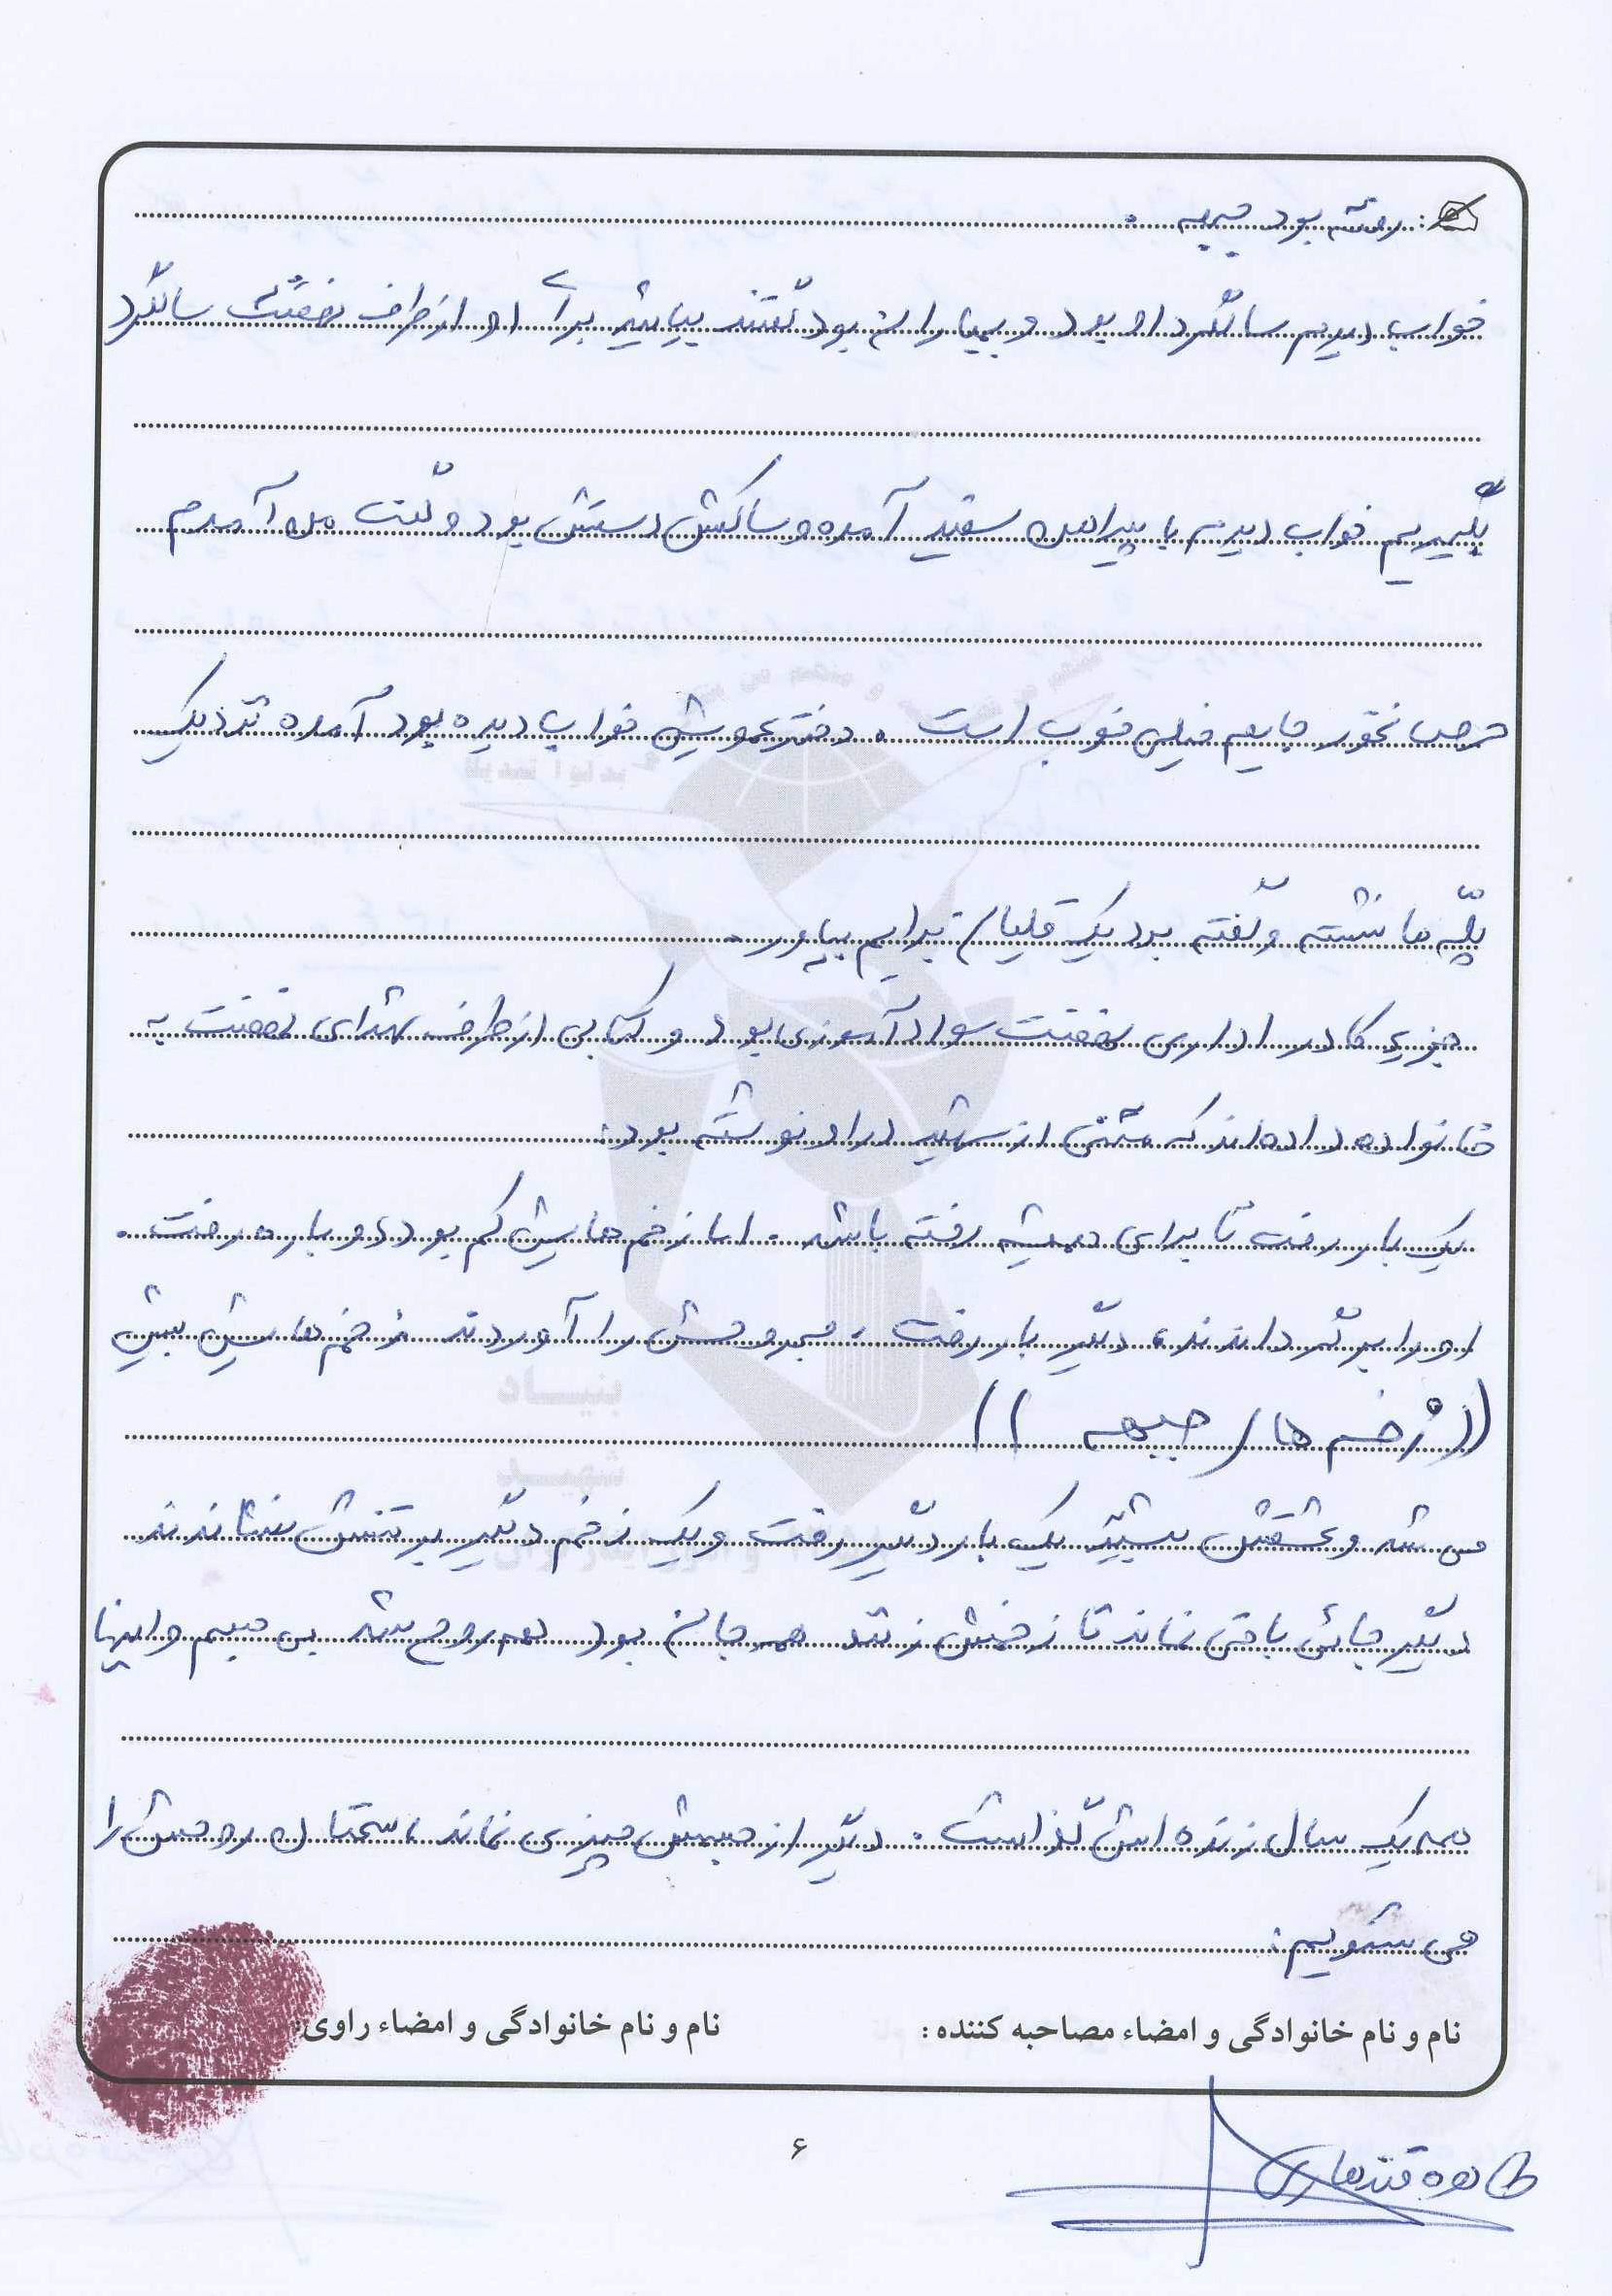 رفته بود جبهه .
خواب دیدم سالگرد او بود و بمباران بود گفتند بیائید برای او از طرف نهضت سالگرد
بگیریم خواب دیدم با پیراهن سفید آمده و ساکش دستش بود و گفت من آمدم
حرص نخور جایم خیلی خوب است . دختر عمویش خواب دیده بود آمده نزدیک
پله ها نشسته و گفته برو یک قلیان برایم بیاور .
جزء کادر اداری نهضت سوادآموزی بود و کتابی از طرف شهدای نهضت به
خانواده داده اند که متنی از شهید در او نوشته بود :
یک بار رفت تا برای همیشه رفته باشد . اما زخم هایش کم بود دوباره رفت .
او را برگرداندند ، دیگر بار رفت ، مجروحش را آوردند زخم هایش بیش
(( زخم های جبهه ))
می شد و عشقش بیشتر یک بار دیگر رفت و یک زخم دیگر بر تنش نشاندند
دیگر جائی باقی نماند تا زخمش زنند همه جان بود همه روح شد بی جسم و اینها
همه یک سال زنده اش گذاشت . دیگر از جسمش چیزی نماند ، سخنان روحش را
می شنویم :
نام و نام خانوادگی و امضاء مصاحبه کننده :
نام و نام خانوادگی و امضاء راوی:
بنیاد
شهید
۶
طاهره قندهاری